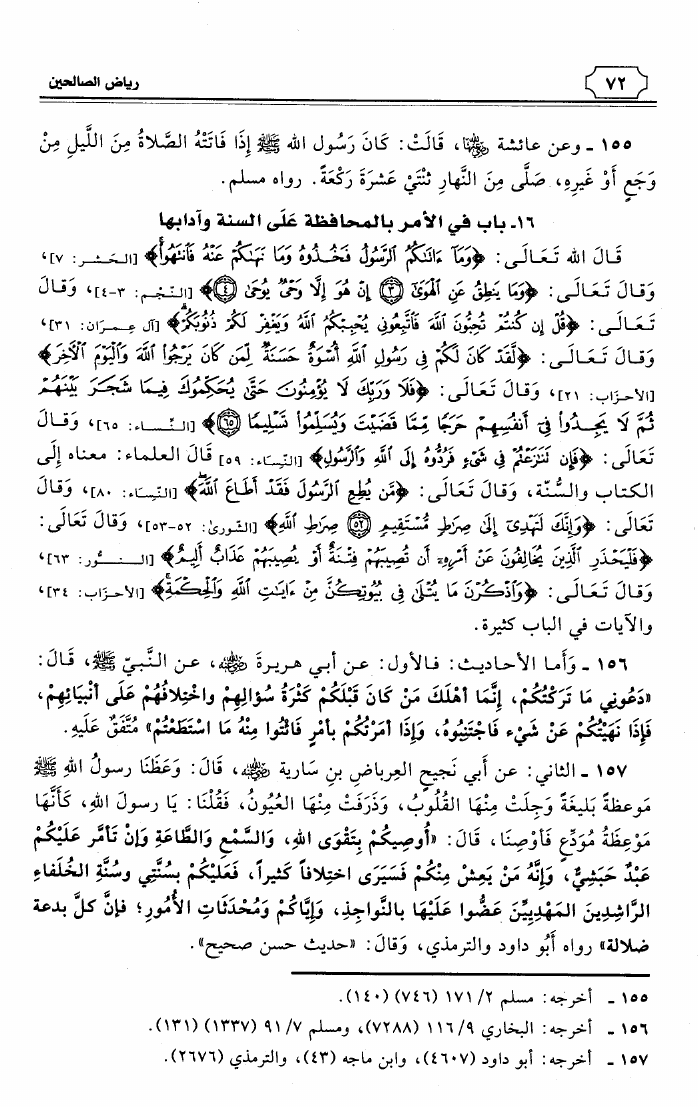 ٧٢
رياض الصالحين
١٥٥ ـ وعن عائشة رضي الله عنها، قَالَتْ: كَانَ رَسُول الله ﷺ إِذَا فَاتَتْهُ الصَّلاةُ مِنَ اللَّيلِ مِنْ
وَجَعٍ أَوْ غَيرِهِ، صَلَّى مِنَ النَّهارِ ثنْتَيْ عَشرَةَ رَكْعَةً. رواه مسلم.
١٦ـ باب في الأمر بالمحافظة عَلَى السنة وآدابها
قَالَ الله تَعَالَى: ﴿وَمَآ ءَاتَىٰكُمُ ٱلرَّسُولُ فَخُذُوهُ وَمَا نَهَىٰكُمْ عَنْهُ فَٱنتَهُوا۟﴾ [الحَشـر: ٧]،
وَقالَ تَعَالَى: ﴿وَمَا يَنطِقُ عَنِ ٱلْهَوَىٰٓ ۝٣ إِنْ هُوَ إِلَّا وَحْىٌ يُوحَىٰ ۝٤﴾ [النّجْم: ٣-٤]، وَقالَ
تَعَالَى: ﴿قُلْ إِن كُنتُمْ تُحِبُّونَ ٱللَّهَ فَٱتَّبِعُونِى يُحْبِبْكُمُ ٱللَّهُ وَيَغْفِرْ لَكُمْ ذُنُوبَكُمْ﴾ [آل عِمرَان: ٣١]،
وَقالَ تَعَالَى: ﴿لَّقَدْ كَانَ لَكُمْ فِى رَسُولِ ٱللَّهِ أُسْوَةٌ حَسَنَةٌ لِّمَن كَانَ يَرْجُوا۟ ٱللَّهَ وَٱلْيَوْمَ ٱلْأَخِرَ﴾
[الأحزَاب: ٢١]، وَقالَ تَعَالَى: ﴿فَلَا وَرَبِّكَ لَا يُؤْمِنُونَ حَتَّىٰ يُحَكِّمُوكَ فِيمَا شَجَرَ بَيْنَهُمْ
ثُمَّ لَا يَجِدُوا۟ فِىٓ أَنفُسِهِمْ حَرَجًا مِّمَّا قَضَيْتَ وَيُسَلِّمُوا۟ تَسْلِيمًا ۝٦٥﴾ [النِّساء: ٦٥]، وَقالَ
تَعَالَى: ﴿فَإِن تَنَٰزَعْتُمْ فِى شَىْءٍ فَرُدُّوهُ إِلَى ٱللَّهِ وَٱلرَّسُولِ﴾ [النِّسَاء: ٥٩] قَالَ العلماء: معناه إِلَى
الكتاب والسُّنّة، وَقالَ تَعَالَى: ﴿مَّن يُطِعِ ٱلرَّسُولَ فَقَدْ أَطَاعَ ٱللَّهَ﴾ [النِّسَاء: ٨٠]، وَقالَ
تَعَالَى: ﴿وَإِنَّكَ لَتَهْدِىٓ إِلَىٰ صِرَٰطٍ مُّسْتَقِيمٍ ۝٥٢ صِرَٰطِ ٱللَّهِ﴾ [الشّورىٰ: ٥٢-٥٣]، وَقالَ تَعَالَى:
﴿فَلْيَحْذَرِ ٱلَّذِينَ يُخَالِفُونَ عَنْ أَمْرِهِۦٓ أَن تُصِيبَهُمْ فِتْنَةٌ أَوْ يُصِيبَهُمْ عَذَابٌ أَلِيمٌ﴾ [الـنُّـور: ٦٣]،
وَقالَ تَعَالَى: ﴿وَٱذْكُرْنَ مَا يُتْلَىٰ فِى بُيُوتِكُنَّ مِنْ ءَايَٰتِ ٱللَّهِ وَٱلْحِكْمَةِ﴾ [الأحزَاب: ٣٤]،
والآيات في الباب كثيرة.
١٥٦ ـ وَأَما الأحاديث: فالأول: عن أبي هريرةَ رضي الله عنه، عن النَّبيّ ﷺ، قَالَ:
«دَعُونِي مَا تَرَكْتُكُمْ، إِنَّمَا أَهْلَكَ مَنْ كَانَ قَبْلَكُمْ كَثْرَةُ سُؤالِهِمْ واخْتِلافُهُمْ عَلَى أَنْبِيَائِهِمْ،
فَإِذَا نَهَيْتُكُمْ عَنْ شَيْء فَاجْتَنِبُوهُ، وَإِذَا أَمَرْتُكُمْ بِأمْرٍ فَأْتُوا مِنْهُ مَا اسْتَطَعْتُمْ» مُتَّفَقٌ عَلَيهِ.
١٥٧ ـ الثاني: عن أَبي نَجيحٍ العِرباضِ بنِ سَارية رضي الله عنه، قَالَ: وَعَظَنَا رسولُ اللهِ ﷺ
مَوعظةً بَليغةً وَجِلَتْ مِنْهَا القُلُوبُ، وَذَرَفَتْ مِنْهَا العُيُونُ، فَقُلْنَا: يَا رسولَ اللهِ، كَأَنَّهَا
مَوْعِظَةُ مُوَدِّعٍ فَأَوْصِنَا، قَالَ: «أُوصِيكُمْ بِتَقْوَى اللهِ، وَالسَّمْعِ وَالطَّاعَةِ وَإِنْ تَأمَّر عَلَيْكُمْ
عَبْدٌ حَبَشِيٌّ، وَإِنَّهُ مَنْ يَعِشْ مِنْكُمْ فَسَيَرَى اختِلافاً كَثيراً، فَعَليْكُمْ بسُنَّتِي وسُنَّةِ الخُلَفاءِ
الرَّاشِدِينَ المَهْدِيِّينَ عَضُّوا عَلَيْهَا بالنَّواجِذِ، وَإِيَّاكُمْ وَمُحْدَثَاتِ الأُمُورِ؛ فإنَّ كلَّ بدعة
ضلالة» رواه أَبُو داود والترمذي، وَقالَ: «حديث حسن صحيح».
١٥٥ ـ أخرجه: مسلم ٢/ ١٧١ (٧٤٦) (١٤٠).
١٥٦ ـ أخرجه: البخاري ٩/ ١١٦ (٧٢٨٨)، ومسلم ٧/ ٩١ (١٣٣٧) (١٣١).
١٥٧ ـ أخرجه: أبو داود (٤٦٠٧)، وابن ماجه (٤٣)، والترمذي (٢٦٧٦).